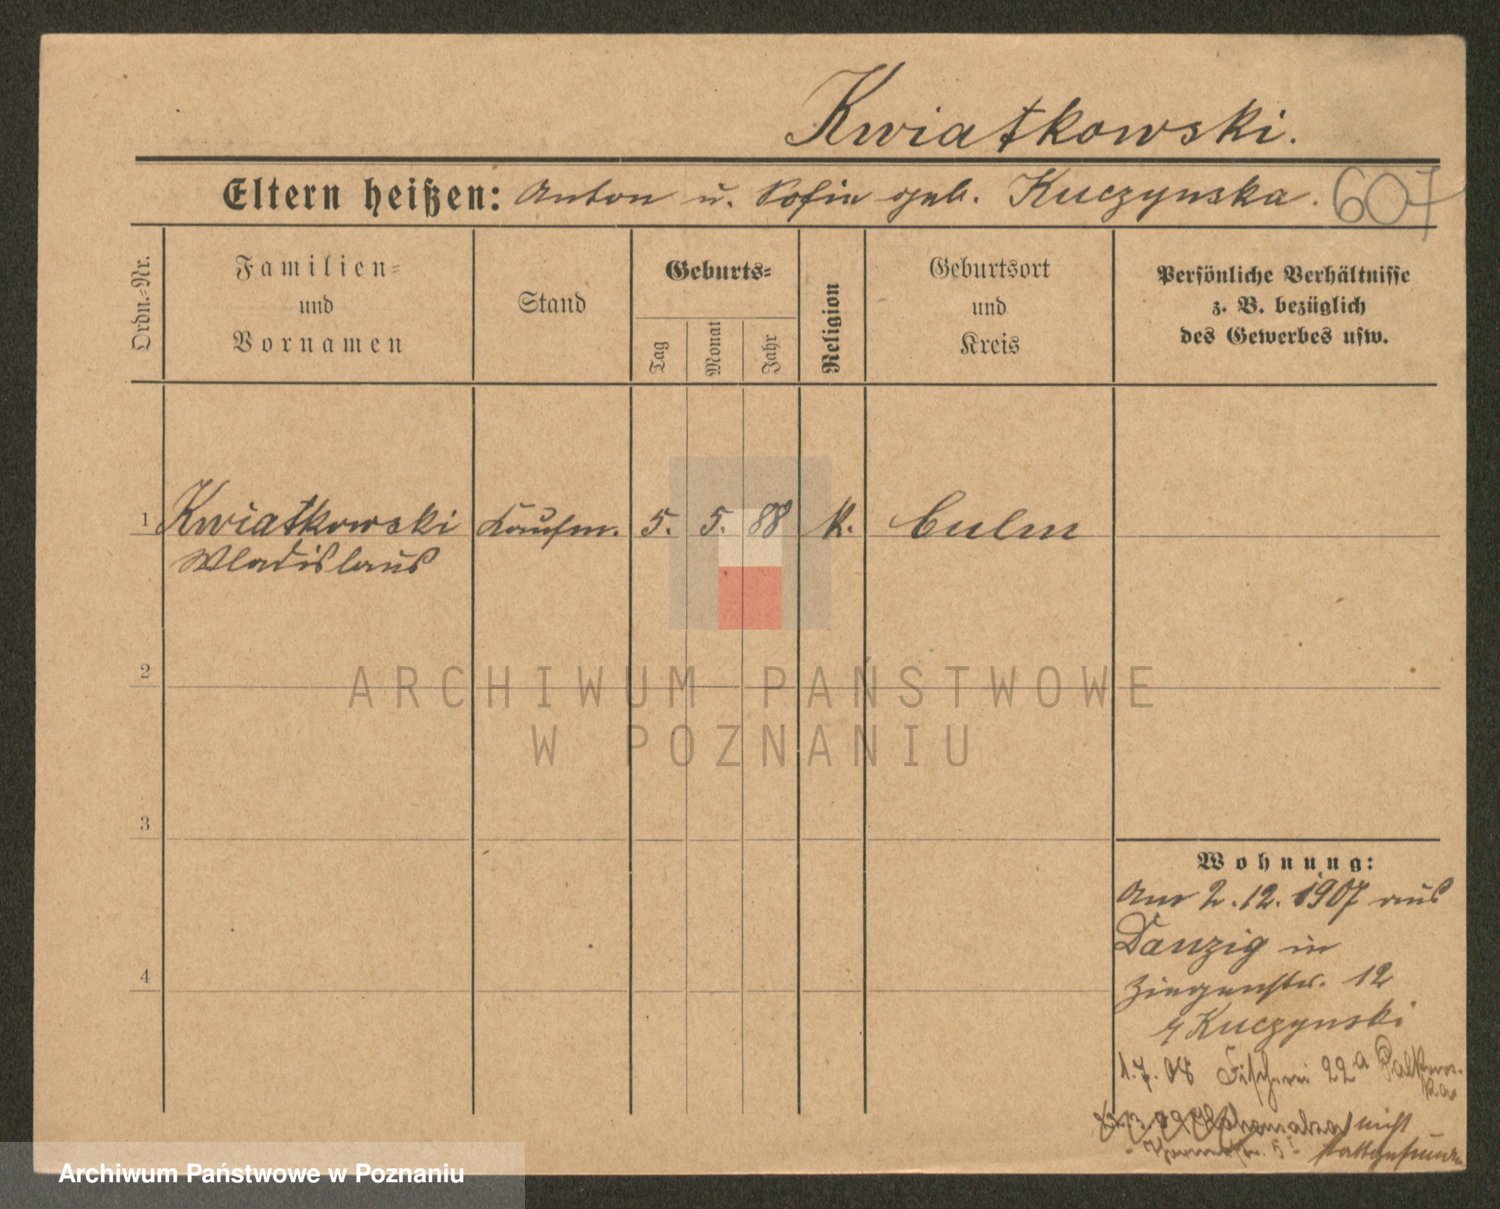 Kwiatkowski.
Eltern heißen: Anton u. Sofie geb. Kuczynska. 607
Ordn.-Nr.
Familien-
und
Vornamen
Stand
Geburts-
Tag
Monat
Jahr
Religion
Geburtsort
und
Kreis
Persönliche Verhältnisse
z. B. bezüglich
des Gewerbes usw.
1 Kwiatkowski Kaufm. 5. 5. 88 K. Culm
Wladislaus
2
ARCHIWUM PAŃSTWOWE
W POZNANIU
3
4
Wohnung:
Am 2.12.1907 aus
Danzig in
Ziegenstr. 12
Kuczynski
1.7.08 Fischerei 22a Palkows-
ka
nicht
stattgefunden
Archiwum Państwowe w Poznaniu